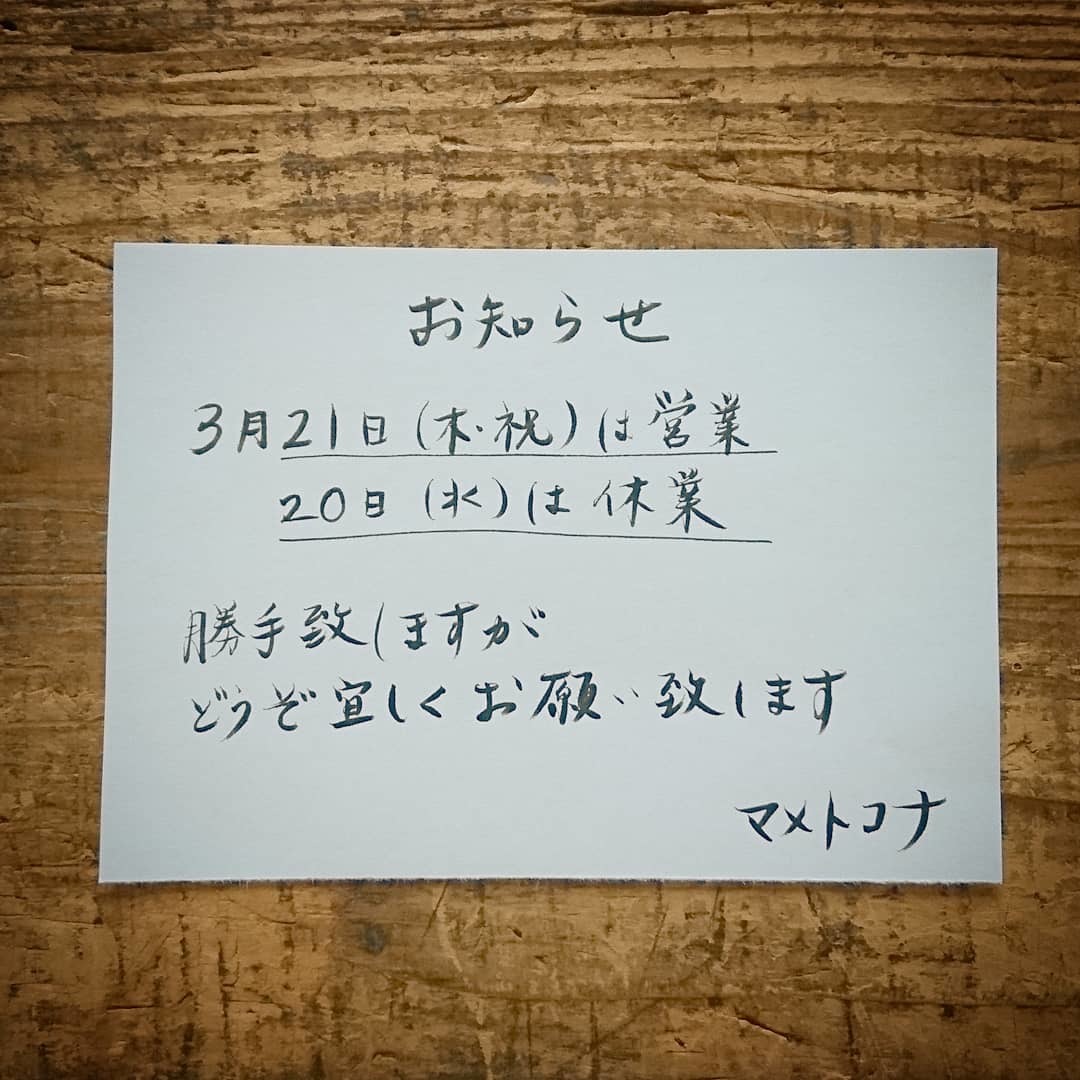 お知らせ
3月21日(木・祝)は営業
20日(水)は休業
勝手致しますが
どうぞ宜しくお願い致します
マメトコナ